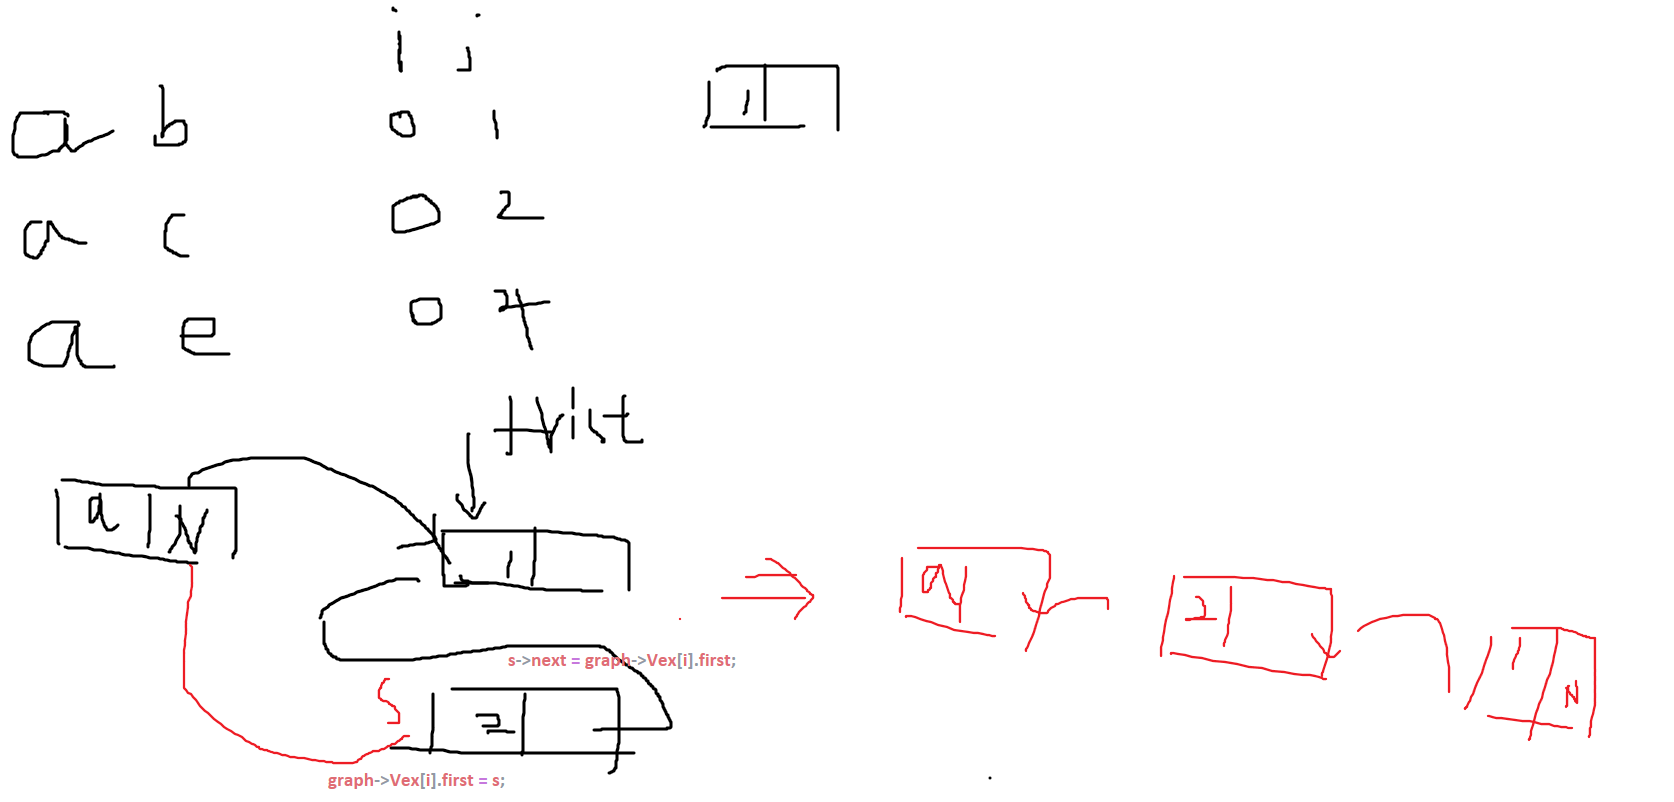 i j
a b 0 1 1
a c 0 2
a e 0 4
a N
1
s->next = graph->Vex[i].first;
S 2
graph->Vex[i].first = s;
a 2 1 N